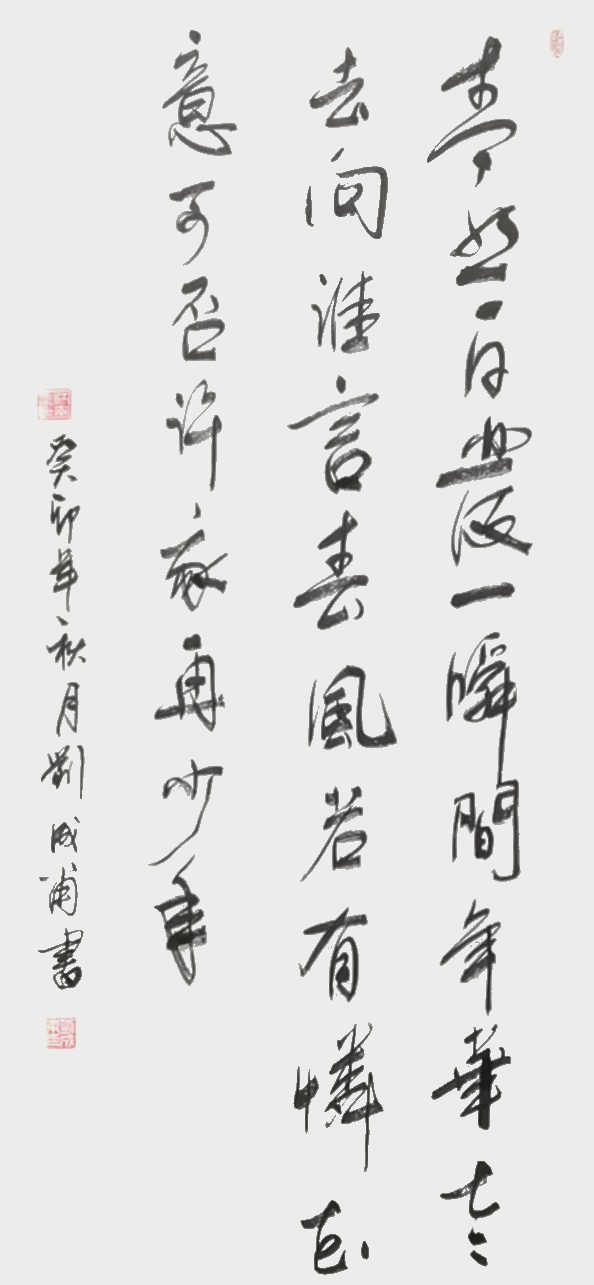 青丝白髮一瞬間年華老
去向誰言春風若有憐花
意可否許我再少年
癸卯年秋月劉成甫書